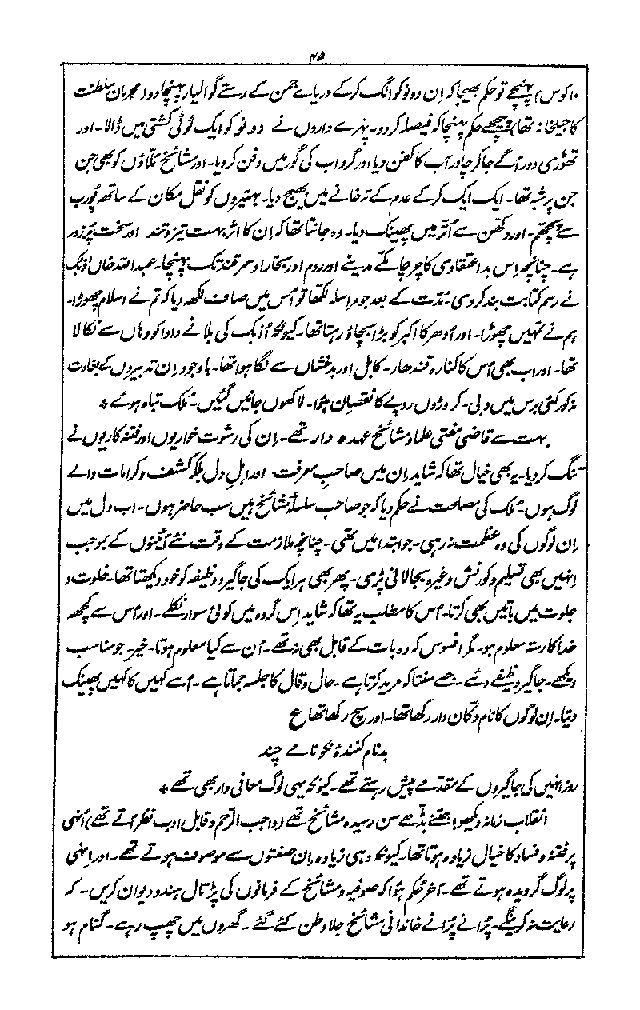 ۴۵
۱۰ کوس) پہنچے تو حکم بھیجا کہ ان دونو کو الگ کر کے دریاے جمن کے رستے گوالیار پہنچا دو (مجرمان سلطنت
کا جیلخانہ تھا) پیچھے حکم پہنچا کہ فیصلہ کر دو۔ پہرے داروں نے دونو کو ایک ٹوٹی کشتی میں ڈالا۔ اور
تھوڑی دور آگے جا کر چادر آب کا کفن دیا اور گرداب کی گور میں دفن کر دیا۔ اور مشائخ و ملاؤں کو بھی جن
جن پر شبہ تھا۔ ایک ایک کر کے عدم کے تہ خانے میں بھیج دیا۔ بہتیروں کو نقل مکان کے ساتھ پورب
سے پچھم۔ اور دکھن سے اُتر میں پھینک دیا۔ وہ جانتا تھا کہ ان کا اثر بہت تیز و تند اور سخت پرزور
ہے۔ چنانچہ اس بد اعتقادی کا چرچا مکے مدینے اور روم اور بخارا و سمرقند تک پہنچا۔ عبداللہ خاں اُزبک
نے رسم کتابت بند کر دی۔ مدت کے بعد جو مراسلہ لکھا تو اس میں صاف لکھ دیا کہ تم نے اسلام چھوڑا۔
ہم نے تمہیں چھوڑا۔ اور اُدھر کا اکبر کو بڑا بچاؤ رہتا تھا۔ کیونکہ اُزبک کی بلا نے دادا کو وہاں سے نکالا
تھا۔ اور اب بھی اس کا کنارہ قندھار۔ کابل اور بدخشاں سے لگا ہوا تھا۔ باوجود ان تدبیروں کے بغاوت
مذکور کئی برس میں دبی۔ کروڑوں روپے کا نقصان ہوا۔ لاکھوں جانیں گئیں۔ ملک تباہ ہوئے *
بہت سے قاضی مفتی علما و مشائخ عہدہ دار تھے۔ ان کی رشوت خواریوں اور فتنہ کاریوں نے
تنگ کر دیا۔ یہ بھی خیال تھا کہ شاید ان میں صاحب معرفت اور اہل دل بلکہ کشف و کرامات والے
لوگ ہوں۔ ملک کی مصلحت نے حکم دیا کہ جو صاحب سلسلہ مشائخ ہیں سب حاضر ہوں۔ اب دل میں
ان لوگوں کی وہ عظمت نہ رہی۔ جو ابتدا میں تھی۔ چنانچہ ملازمت کے وقت نئے آئینوں کے بموجب
انہیں بھی تسلیم و کورنش وغیرہ بجا لانی پڑی۔ پھر بھی ہر ایک کی جاگیر و وظیفہ کو خود دیکھتا تھا۔ خلوت و
جلوت میں باتیں بھی کرتا۔ اس کا مطلب یہ تھا کہ شاید اس گروہ میں کوئی سوار نکلے۔ اور اس سے کچھ
خدا کا رستہ معلوم ہو۔ مگر افسوس کہ وہ بات کے قابل بھی نہ تھے۔ اُن سے کیا معلوم ہوتا۔ خیر جو مناسب
دیکھے۔ جاگیر وظیفے دئے۔ جسے سنتا کہ مرید کرتا ہے۔ حال و قال کا جلسہ جماتا ہے۔ اُسے کہیں کا کہیں پھینک
دیتا۔ ان لوگوں کا نام دکان دار رکھا تھا۔ اور سچ رکھا تھا ع
بدنام کنندۂ نکونامے چند
روز انہیں کی جاگیروں کے مقدمے پیش رہتے تھے۔ کیونکہ یہی لوگ معافی دار بھی تھے *
انقلاب زمانہ دیکھو! جتنے بڈھے سن رسیدہ مشائخ تھے (واجب الرحم و قابل ادب نظر آتے تھے) اُنہی
پر فتنہ و فساد کا خیال زیادہ ہوتا تھا۔ کیونکہ وہی زیادہ ان صفتوں سے موصوف ہوتے تھے۔ اور انہی
پر لوگ گرویدہ ہوتے تھے۔ آخر حکم ہوا کہ صوفیہ و مشائخ کے فرمانوں کی پڑتال ہندو دیوان کریں۔ کہ
رعایت نہ کرینگے۔ پُرانے پُرانے خاندانی مشائخ جلا وطن کئے گئے۔ گھروں میں چھپ رہے۔ گمنام ہو